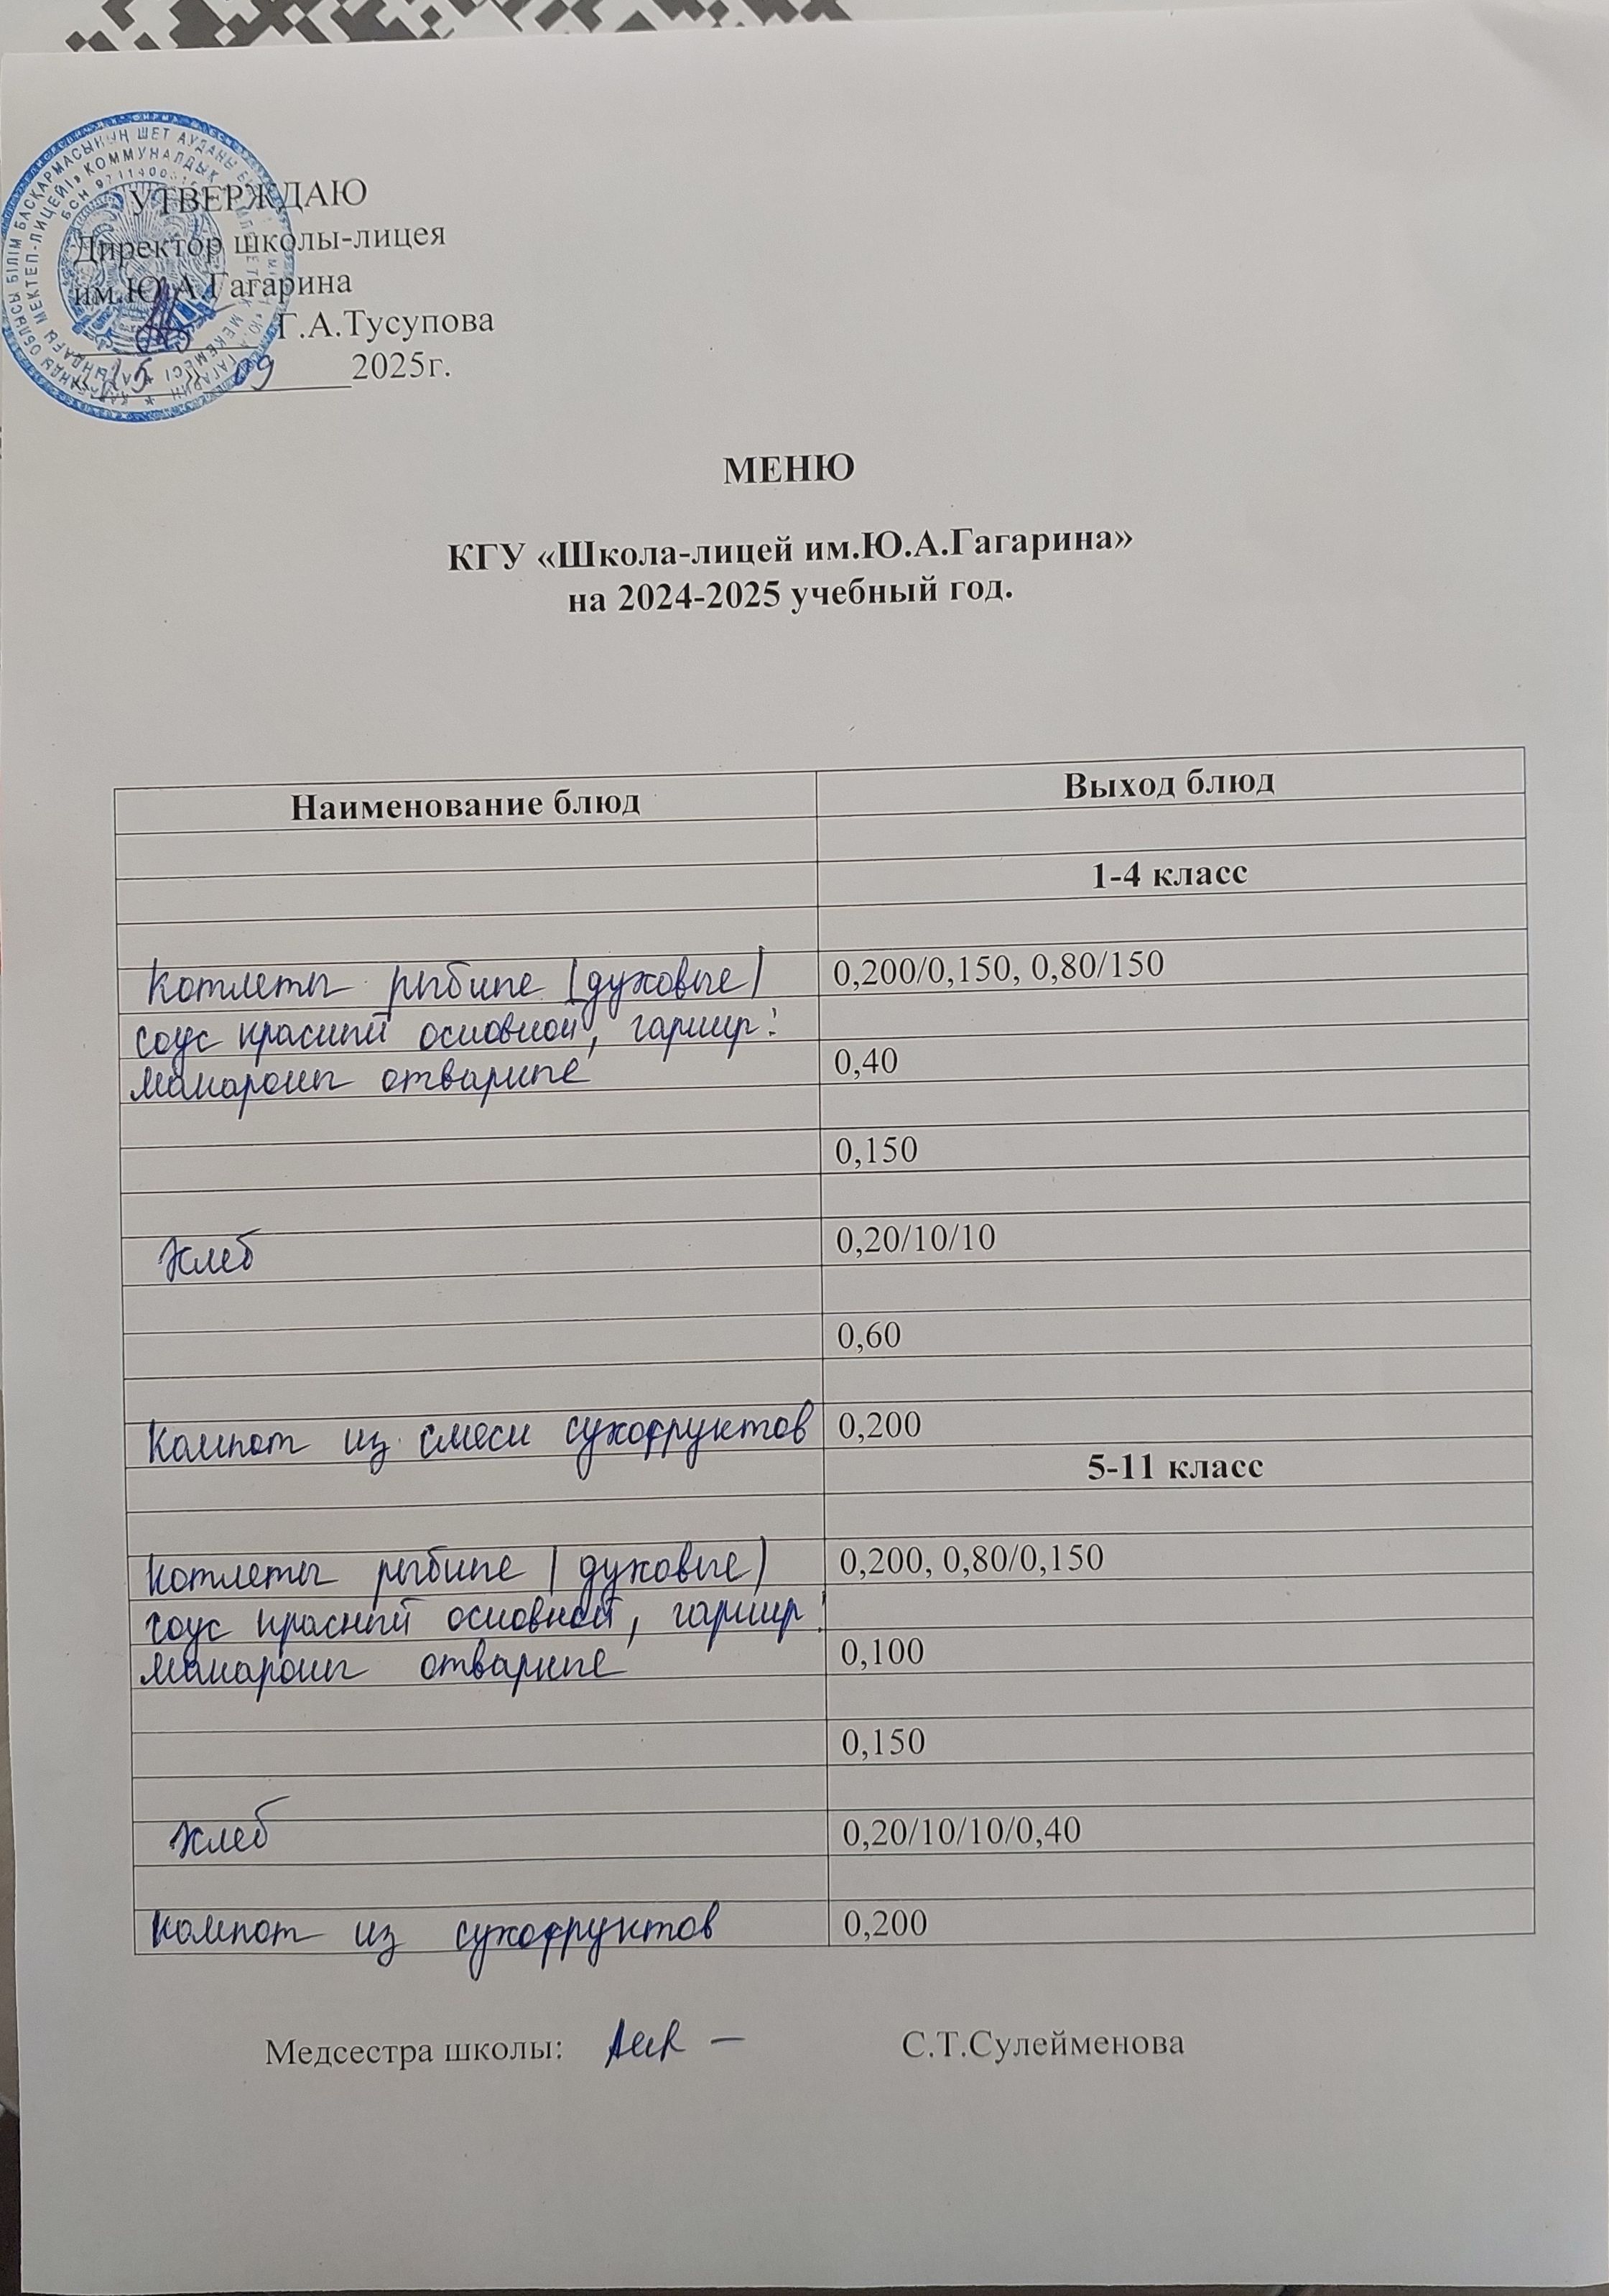 УТВЕРЖДАЮ
Директор школы-лицея
им.Ю.А.Гагарина
Г.А.Тусупова
09 2025г.
МЕНЮ
КГУ «Школа-лицей им.Ю.А.Гагарина»
на 2024-2025 учебный год.
Наименование блюд Выход блюд
1-4 класс
Котлеты рыбные (духовые) 0,200/0,150, 0,80/150
соус красный основной, гарнир:
макароны отварные 0,40
0,150
Хлеб 0,20/10/10
0,60
Компот из смеси сухофруктов 0,200
5-11 класс
Котлеты рыбные (духовые) 0,200, 0,80/0,150
соус красный основной, гарнир:
макароны отварные 0,100
0,150
Хлеб 0,20/10/10/0,40
Компот из сухофруктов 0,200
Медсестра школы: С.Т.Сулейменова